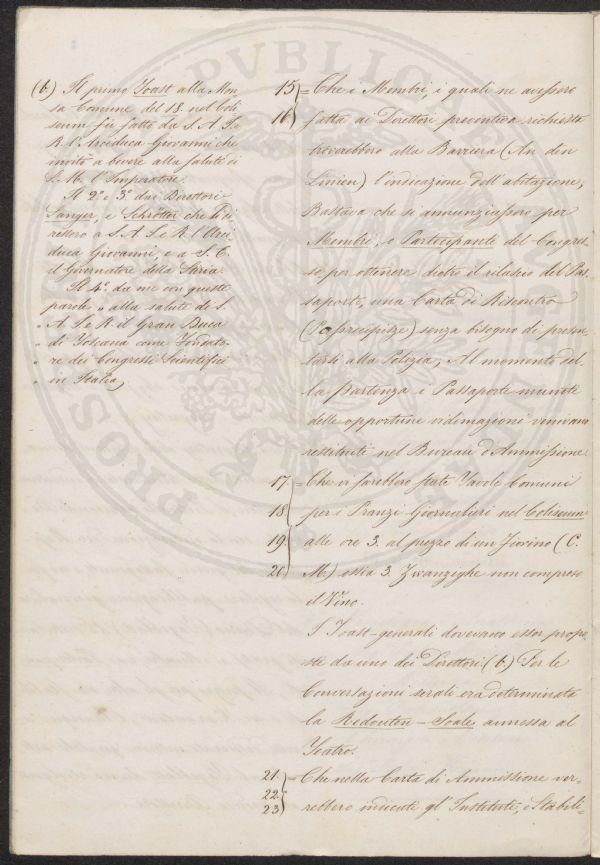 (b.) Il primo Toast alla Men-
sa Comune del 18. nel Coli-
seum fù fatto da S. A. I. e
R. l'Arciduca Giovanni che
invitò a bevere alla salute di
S. M. l'Imperatore.
Il 2º e 3º dai Direttori
Langer, e Schrötter che li di-
ressero a S. A. I. e R. l'Arci-
duca Giovanni, e a S. E.
il Governatore della Stiria.
Il 4º da me con queste
parole " alla salute di S.
" A. I. e R. il Gran Duca
" di Toscana come Fondato-
" re dei Congressi Scientifici
" in Italia,
15 = Che i Membri, i quali ne avessero
16 fatta ai Direttori preventiva richiesta
troverebbero alla Barriera (An den
Linien) l'indicazione dell'abitazione,
Bastava che si annunziassero per
Membri, o Partecipante del Congres-
so per ottenere dietro il rilascio del Pas-
saporte, una Carta di Riscontro
senza bisogno di presen-
tarsi alla Polizia, Al momento del-
la partenza i Passaporte munite
delle opportune vidimazioni venivano
restituiti nel Bureau d'Ammissione.
17. = Che vi sarebbero state Tavole Comuni
18. per i Pranzi Giornalieri nel Coliseum
19. alle ore 3. al prezzo di un Fiorino (C.
20. M.) ossia 3. Zwanzighe non compreso
il Vino.
I Toast generali dovevano esser propo-
ste da uno dei Direttori (b.) Per le
Conversazioni serali era determinata
la Redouten-Saale, annessa al
Teatro.
21. = Che nella Carta di Ammissione ver-
22. rebbero indicati gl'Instituti, i Stabili-
23.
PROS PVBLICAE